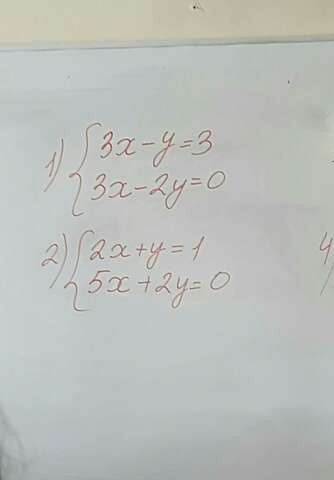 1) { 3x-y=3
3x-2y=0
2) { 2x+y=1
5x+2y=0
4